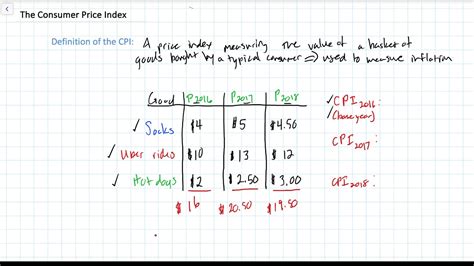 The Consumer Price Index
Definition of the CPI: A price index measuring the value of a basket of
goods bought by a typical consumer => used to measure inflation
Good P2016 P2017 P2018
✓ Socks $4 $5 $4.50
✓ Uber rides $10 $13 $12
✓ Hot dogs $2 $2.50 $3.00
$16 $20.50 $19.50
✓ CPI2016:
✓ (base year)
CPI2017:
CPI2018: